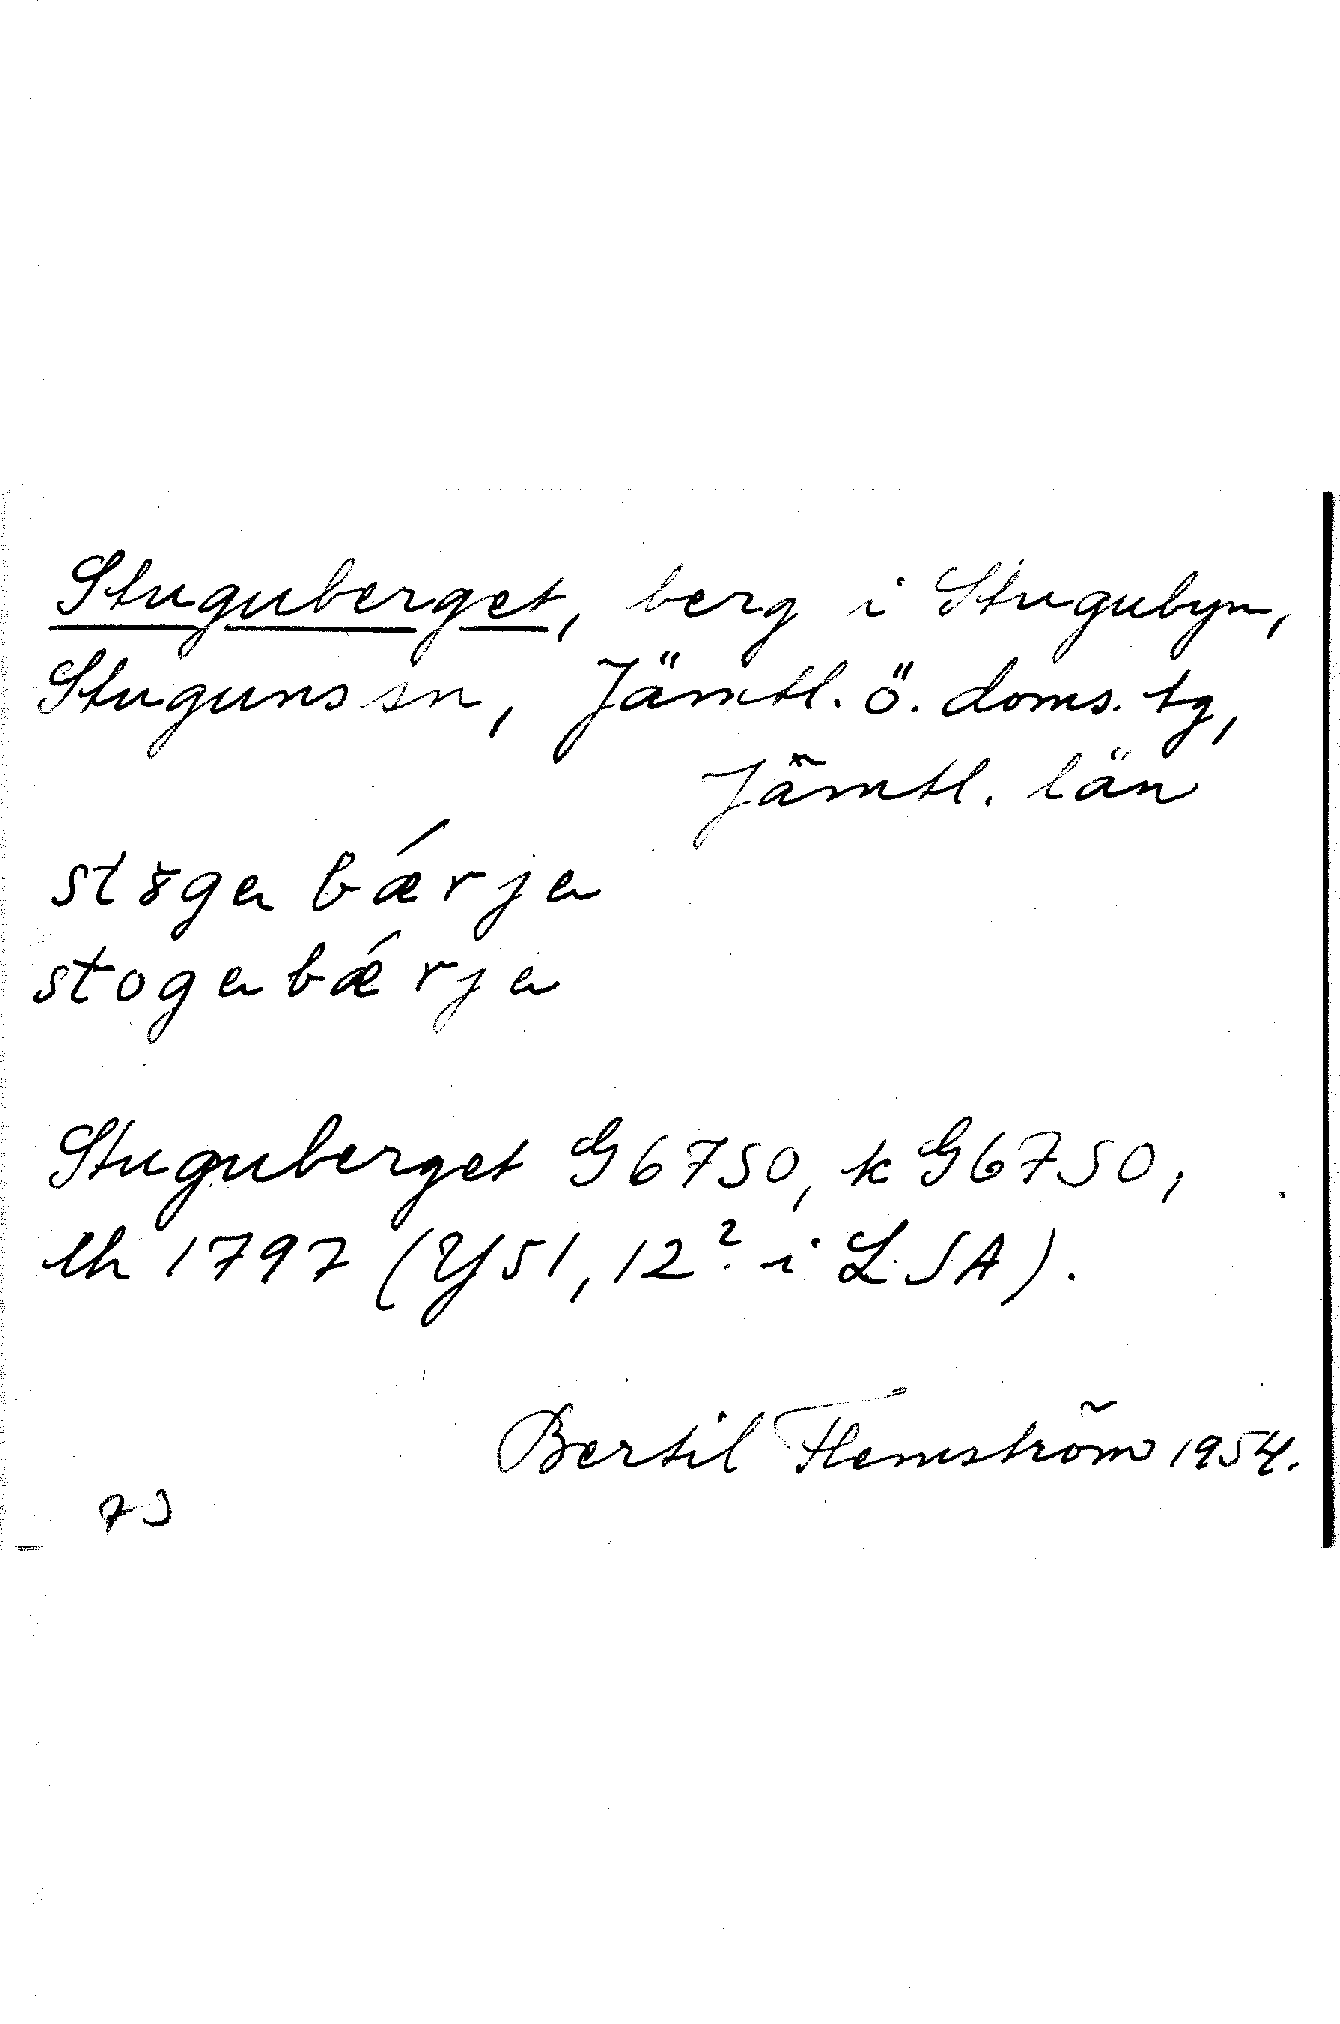 Stuguberget, berg i Stugubyn,
Stuguns sn, Jämtl. ö. doms. tg,
Jämtl. län
støga bǽrja
stoga bǽrja
Stuguberget G6750, k G6750,
lh 1797 (Y51, 12² i LSA).
Bertil Flemström 1954.